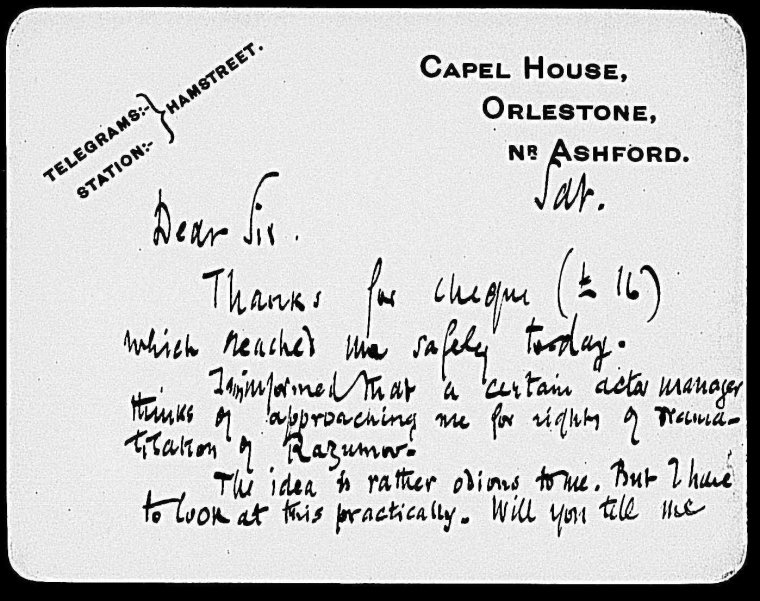 TELEGRAMS:-
STATION:-
} HAMSTREET.
CAPEL HOUSE,
ORLESTONE,
NR ASHFORD.
Sat.
Dear Sir.
Thanks for cheque (£ 16)
which reached me safely today.
I am informed that a certain actor manager
thinks of approaching me for rights of drama-
tisation of Razumov.
The idea is rather odious to me. But I have
to look at this practically. Will you tell me